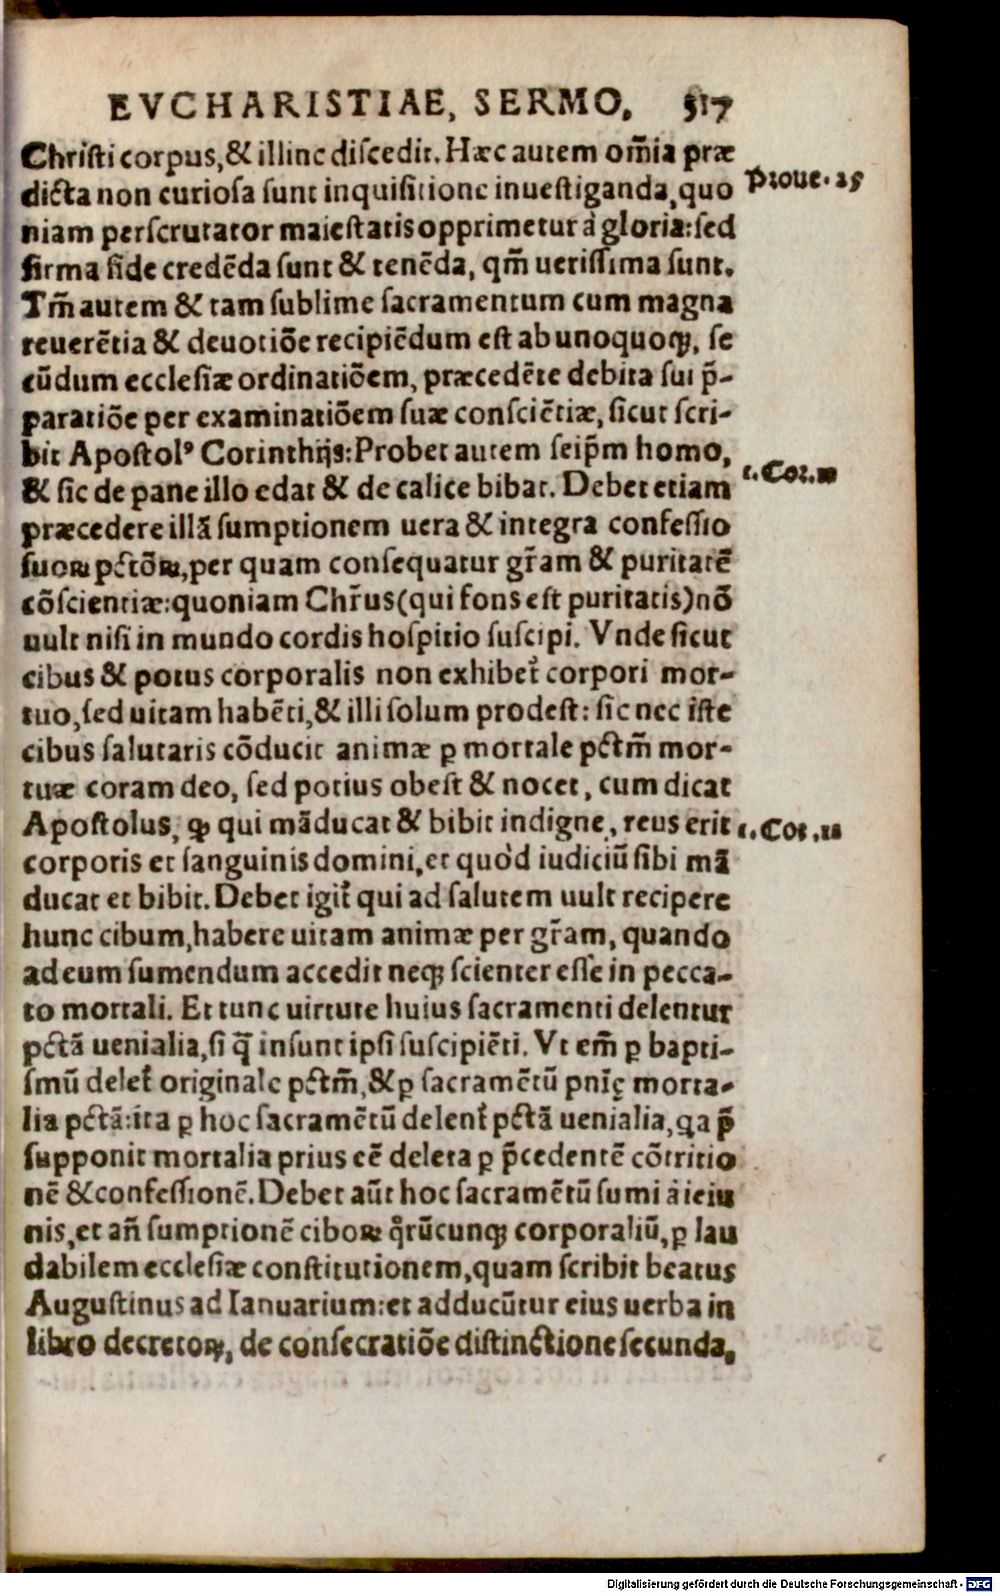 EVCHARISTIAE, SERMO. 517
Christi corpus,& illinc discedit. Hæc autem om̃ia præ
dicta non curiosa sunt inquisitione inuestiganda, quo
Proue. 25
niam perscrutator maiestatis opprimetur à gloria: sed
firma fide credẽda sunt & tenẽda, qm̃ uerissima sunt.
Tm̃ autem & tam sublime sacramentum cum magna
reuerẽtia & deuotiõe recipiẽdum est ab unoquoqꝫ, se
cũdum ecclesiæ ordinatiõem, præcedẽte debita sui p̃-
paratiõe per examinatiõem suæ consciẽtiæ, sicut scri-
bit Apostolꝰ Corinthijs: Probet autem seip̃m homo,
& sic de pane illo edat & de calice bibat. Debet etiam
1. Cor. 11
præcedere illã sumptionem uera & integra confessio
suoꝝ pctõꝝ, per quam consequatur gr̃am & puritatẽ
cõscientiæ: quoniam Chr̃us (qui fons est puritatis) nõ
uult nisi in mundo cordis hospitio suscipi. Vnde sicut
cibus & potus corporalis non exhibet᷑ corpori mor-
tuo, sed uitam habẽti, & illi solum prodest: sic nec iste
cibus salutaris cõducit animæ ꝑ mortale pctm̃ mor-
tuæ coram deo, sed potius obest & nocet, cum dicat
Apostolus, ꝙ qui mãducat & bibit indigne, reus erit
1. Cor. 11
corporis et sanguinis domini, et quòd iudiciũ sibi mã
ducat et bibit. Debet igit᷑ qui ad salutem uult recipere
hunc cibum, habere uitam animæ per gr̃am, quando
ad eum sumendum accedit neqꝫ scienter esse in pecca-
to mortali. Et tunc uirtute huius sacramenti delentur
pctã uenialia, si q̃ insunt ipsi suscipiẽti. Vt em̃ ꝑ bapti-
smũ delet᷑ originale pctm̃, & ꝑ sacramẽtũ pnĩę morta-
lia pctã: ita ꝑ hoc sacramẽtũ delent᷑ pctã uenialia, ꝗa p̃
supponit mortalia prius eẽ deleta ꝑ p̃cedentẽ cõtritio
nẽ & confessionẽ. Debet aũt hoc sacramẽtũ sumi à ieiu
nis, et añ sumptionẽ ciboꝝ q̃rũcunqꝫ corporaliũ, ꝑ lau
dabilem ecclesiæ constitutionem, quam scribit beatus
Augustinus ad Ianuarium: et adducũtur eius uerba in
libro decretoꝝ, de consecratiõe distinctione secunda,
Digitalisierung gefördert durch die Deutsche Forschungsgemeinschaft - DFG